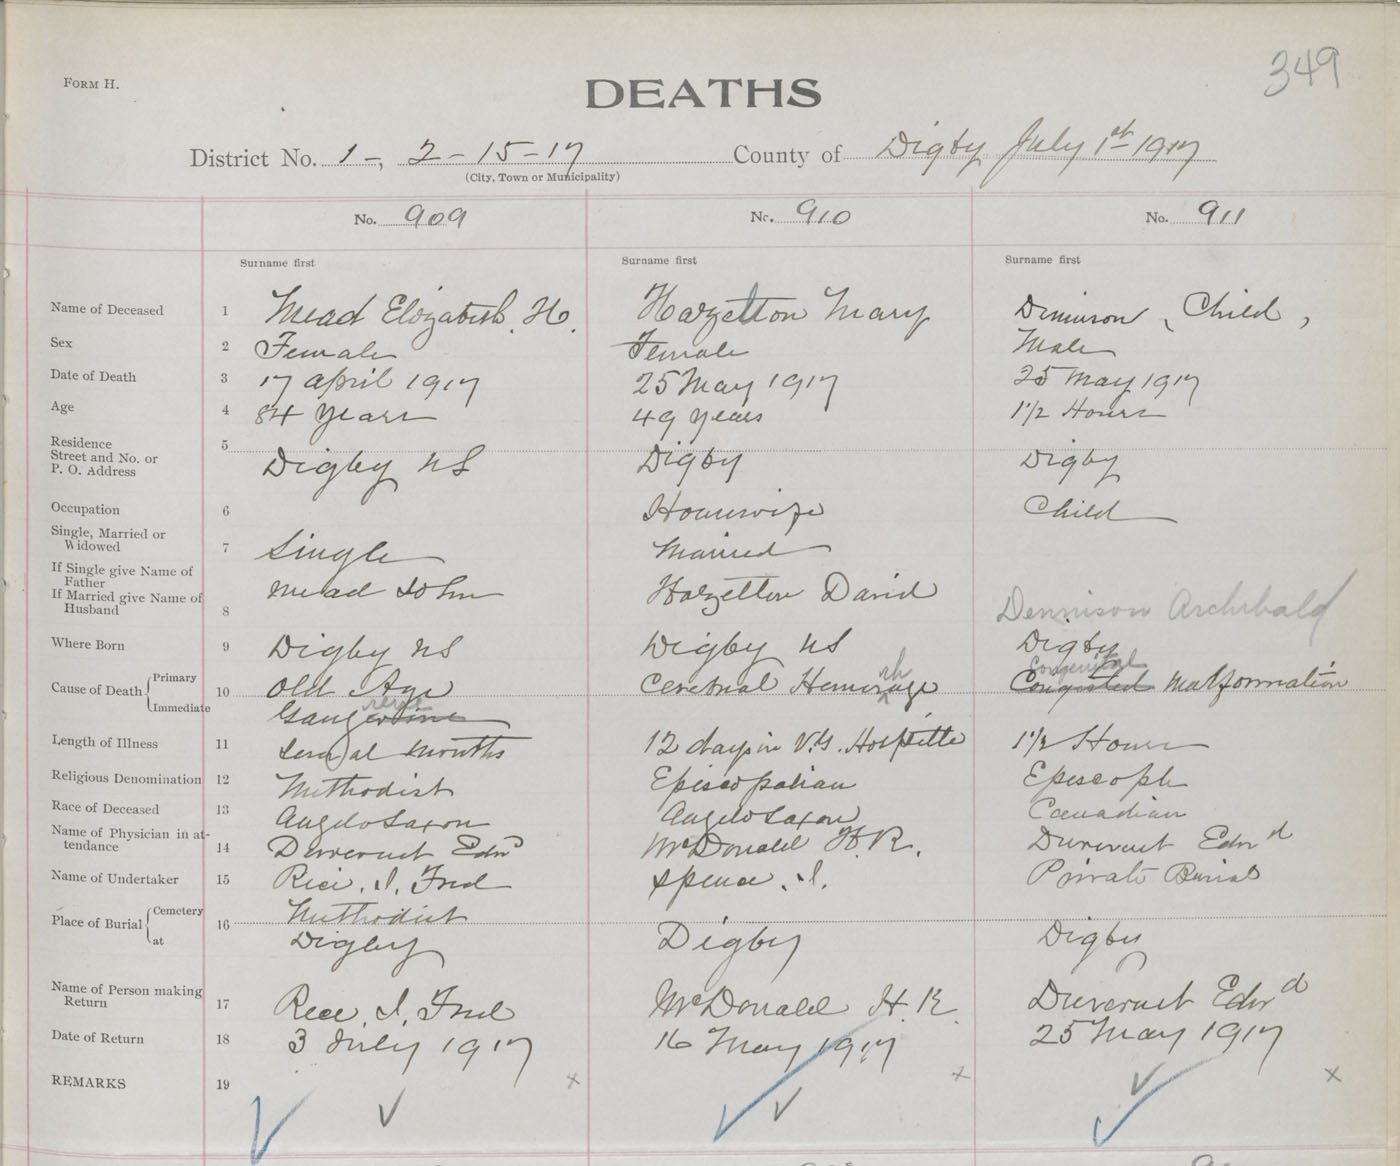 349
FORM H.
DEATHS
District No. 1-, 2-15-17 County of Digby July 1st 1917
(City, Town or Municipality)
No. 909 No. 910 No. 911
Surname first Surname first Surname first
Name of Deceased 1 Mead Elizabeth. H. Hazelton Mary Dennison, Child,
Sex 2 Female Female Male
Date of Death 3 17 April 1917 25 May 1917 25 May 1917
Age 4 84 years 49 years 1 1/2 Hours
Residence
Street and No. or
P. O. Address 5 Digby NS Digby Digby
Occupation 6 Housewife Child
Single, Married or
Widowed 7 Single Married
If Single give Name of
Father
If Married give Name of
Husband 8 Mead John Hazelton David Dennison Archibald
Where Born 9 Digby NS Digby NS Digby
Congenital
Cause of Death Primary 10 Old Age Cerebral Hemorrhage Congested Malformation
Immediate
Length of Illness 11 Several months 12 days in V.G. Hospittle 1 1/2 Hours
Religious Denomination 12 Methodist Episcopalian Episcople
Race of Deceased 13 Anglo Saxon Anglo Saxon Canadian
Name of Physician in at-
tendance 14 Duvernet Edwd McDonald H. R. Duvernet Edwd
Name of Undertaker 15 Rice, I, Fred Spence. I. Private Burial
Place of Burial Cemetery 16 Methodist
at Digby Digby Digby
Name of Person making
Return 17 Rice, I, Fred McDonald H. R. Duvernet Edwd
Date of Return 18 3 July 1917 16 May 1917 25 May 1917
REMARKS 19 x x x